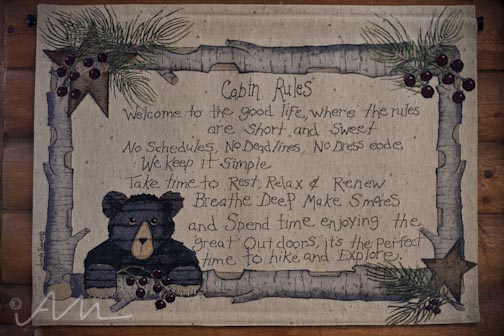 Cabin Rules
Welcome to the good life, where the rules
are short and sweet
No Schedules, No Deadlines, No Dress code,
We keep it simple
Take time to Rest, Relax & Renew
Breathe Deep Make Smores
and Spend time enjoying the
great Outdoors, it's the perfect
time to hike and Explore.